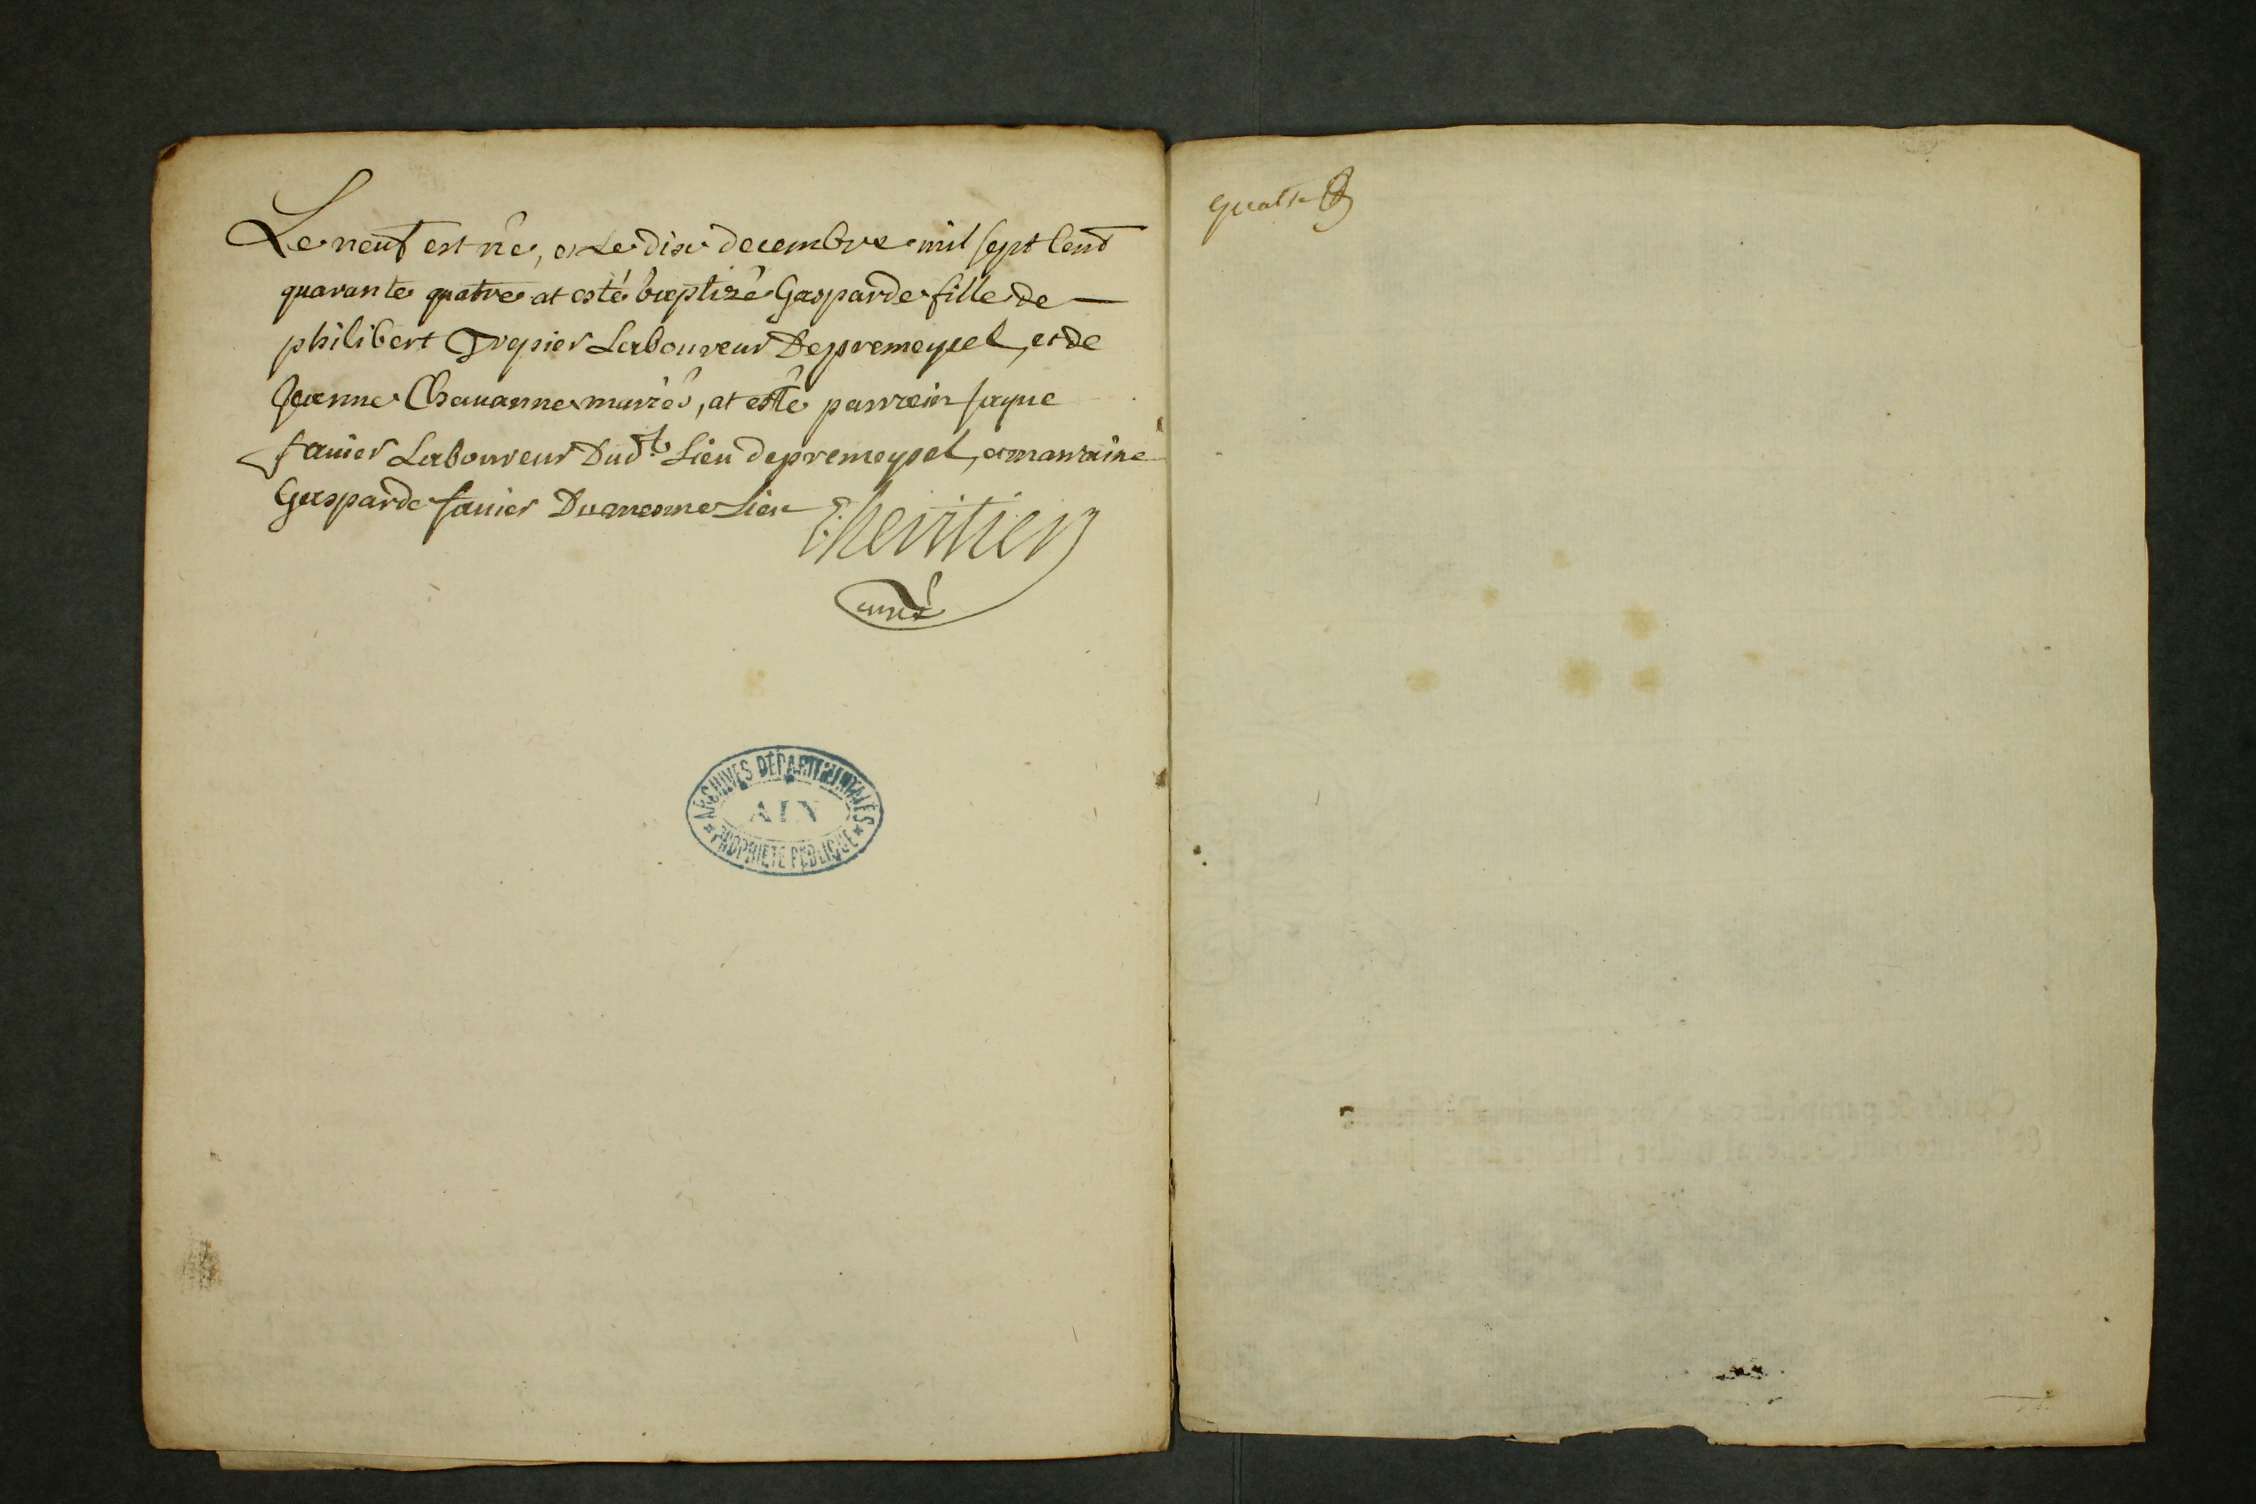 Le neuf est né, et Le dix decembre mil sept cent
quarante quatre at esté baptizé Gasparde fille de
philibert Trepier Laboureur De premeysel, et de
Jeanne Chavanne mariés, at esté parrein Jaque
Janier Laboureur Dud.t Lieu de premeysel, et marraine
Gasparde Janier Du mesme Lieu
curé
ARCHIVES DÉPARTEMENTALES
AIN
PROPRIÉTÉ PUBLIQUE
quatre